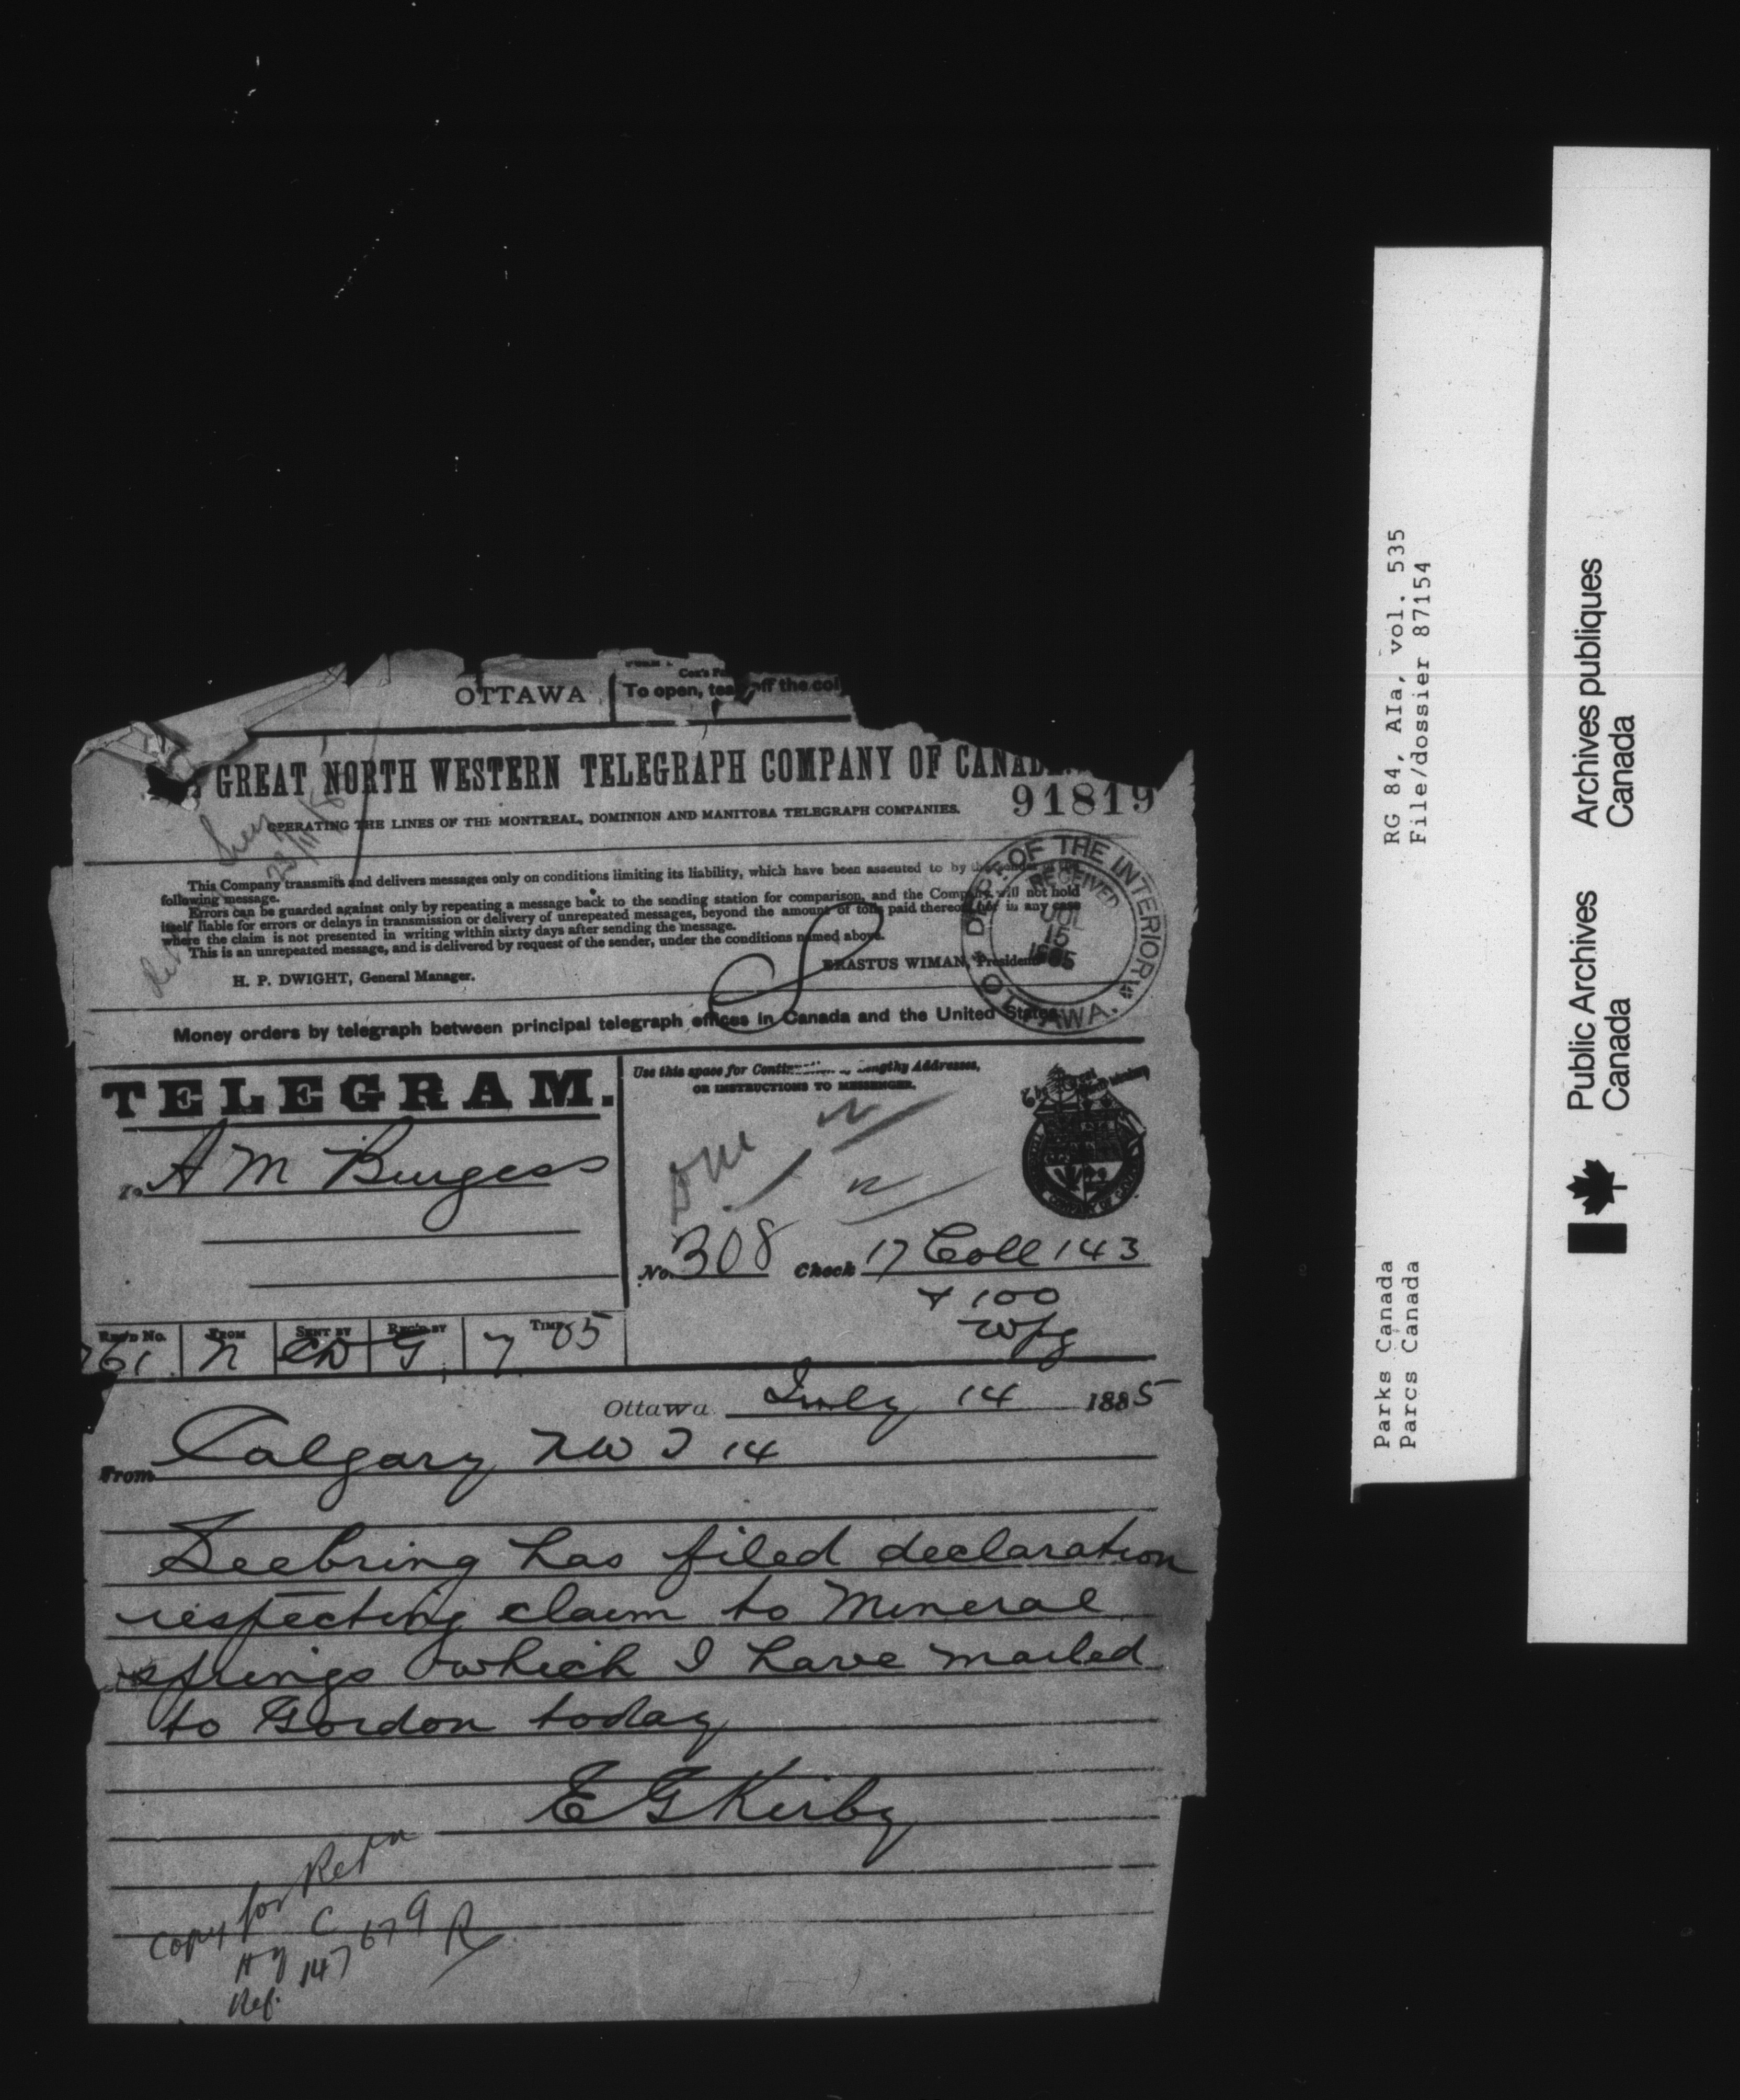 OTTAWA
To open, tea off the col
GREAT NORTH WESTERN TELEGRAPH COMPANY OF CANAD
91819
OPERATING THE LINES OF THE MONTREAL, DOMINION AND MANITOBA TELEGRAPH COMPANIES.
This Company transmits and delivers messages only on conditions limiting its liability, which have been assented to by the sender of the
following message.
Errors can be guarded against only by repeating a message back to the sending station for comparison, and the Company will not hold
itself liable for errors or delays in transmission or delivery of unrepeated messages, beyond the amount of tolls paid thereon, nor in any case
where the claim is not presented in writing within sixty days after sending the message.
This is an unrepeated message, and is delivered by request of the sender, under the conditions named above.
ERASTUS WIMAN, President.
H. P. DWIGHT, General Manager.
DEPT. OF THE INTERIOR
RECEIVED
JUL
15
1885
OTTAWA.
Money orders by telegraph between principal telegraph offices in Canada and the United States.
TELEGRAM.
Use this space for Lengthy Addresses,
OR INSTRUCTIONS TO MESSENGER.
To A M Burgess
No. 308 Check 17 Coll 143
+ 100
Wpg
Rec'd No. FROM SENT BY Rec'd BY TIME
261 N CD G 7 05
Ottawa July 14 1885
From Calgary NWT 14
Seebring has filed declaration
respecting claim to Mineral
springs which I have mailed
to Gordon today
E G Kirby
Copy for Retn
C
Ref. 147679 R
RG 84, AIa, vol. 535
File/dossier 87154
Parks Canada
Parcs Canada
Public Archives
Canada
Archives publiques
Canada